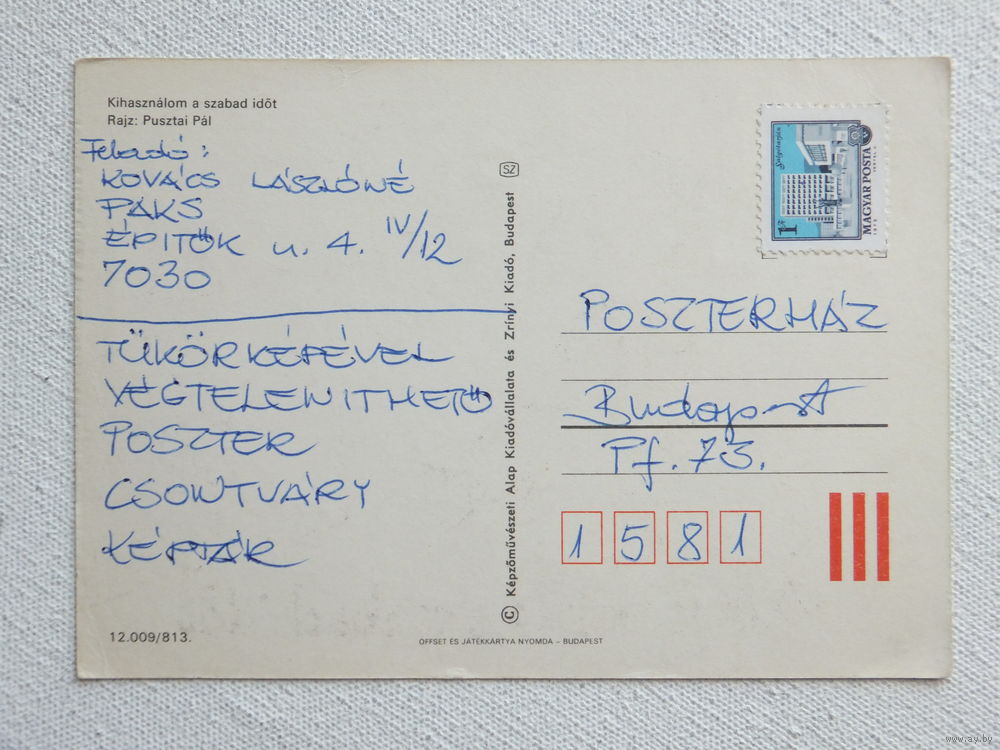 Kihasználom a szabad időt
Rajz: Pusztai Pál
Feladó:
KOVÁCS LÁSZLÓNÉ
PAKS
ÉPITŐK u. 4. IV/12
7030
TÜKÖRKÉPÉVEL
VÉGTELENITHETŐ
POSZTER
CSONTVÁRY
KÉPTÁR
12.009/813.
SZ
© Képzőművészeti Alap Kiadóvállalata és Zrínyi Kiadó, Budapest
OFFSET ÉS JÁTÉKKÁRTYA NYOMDA – BUDAPEST
Salgótarján
1 Ft
MAGYAR POSTA
POSZTERHÁZ
Budapest
Pf. 73.
1 5 8 1
www.ay.by